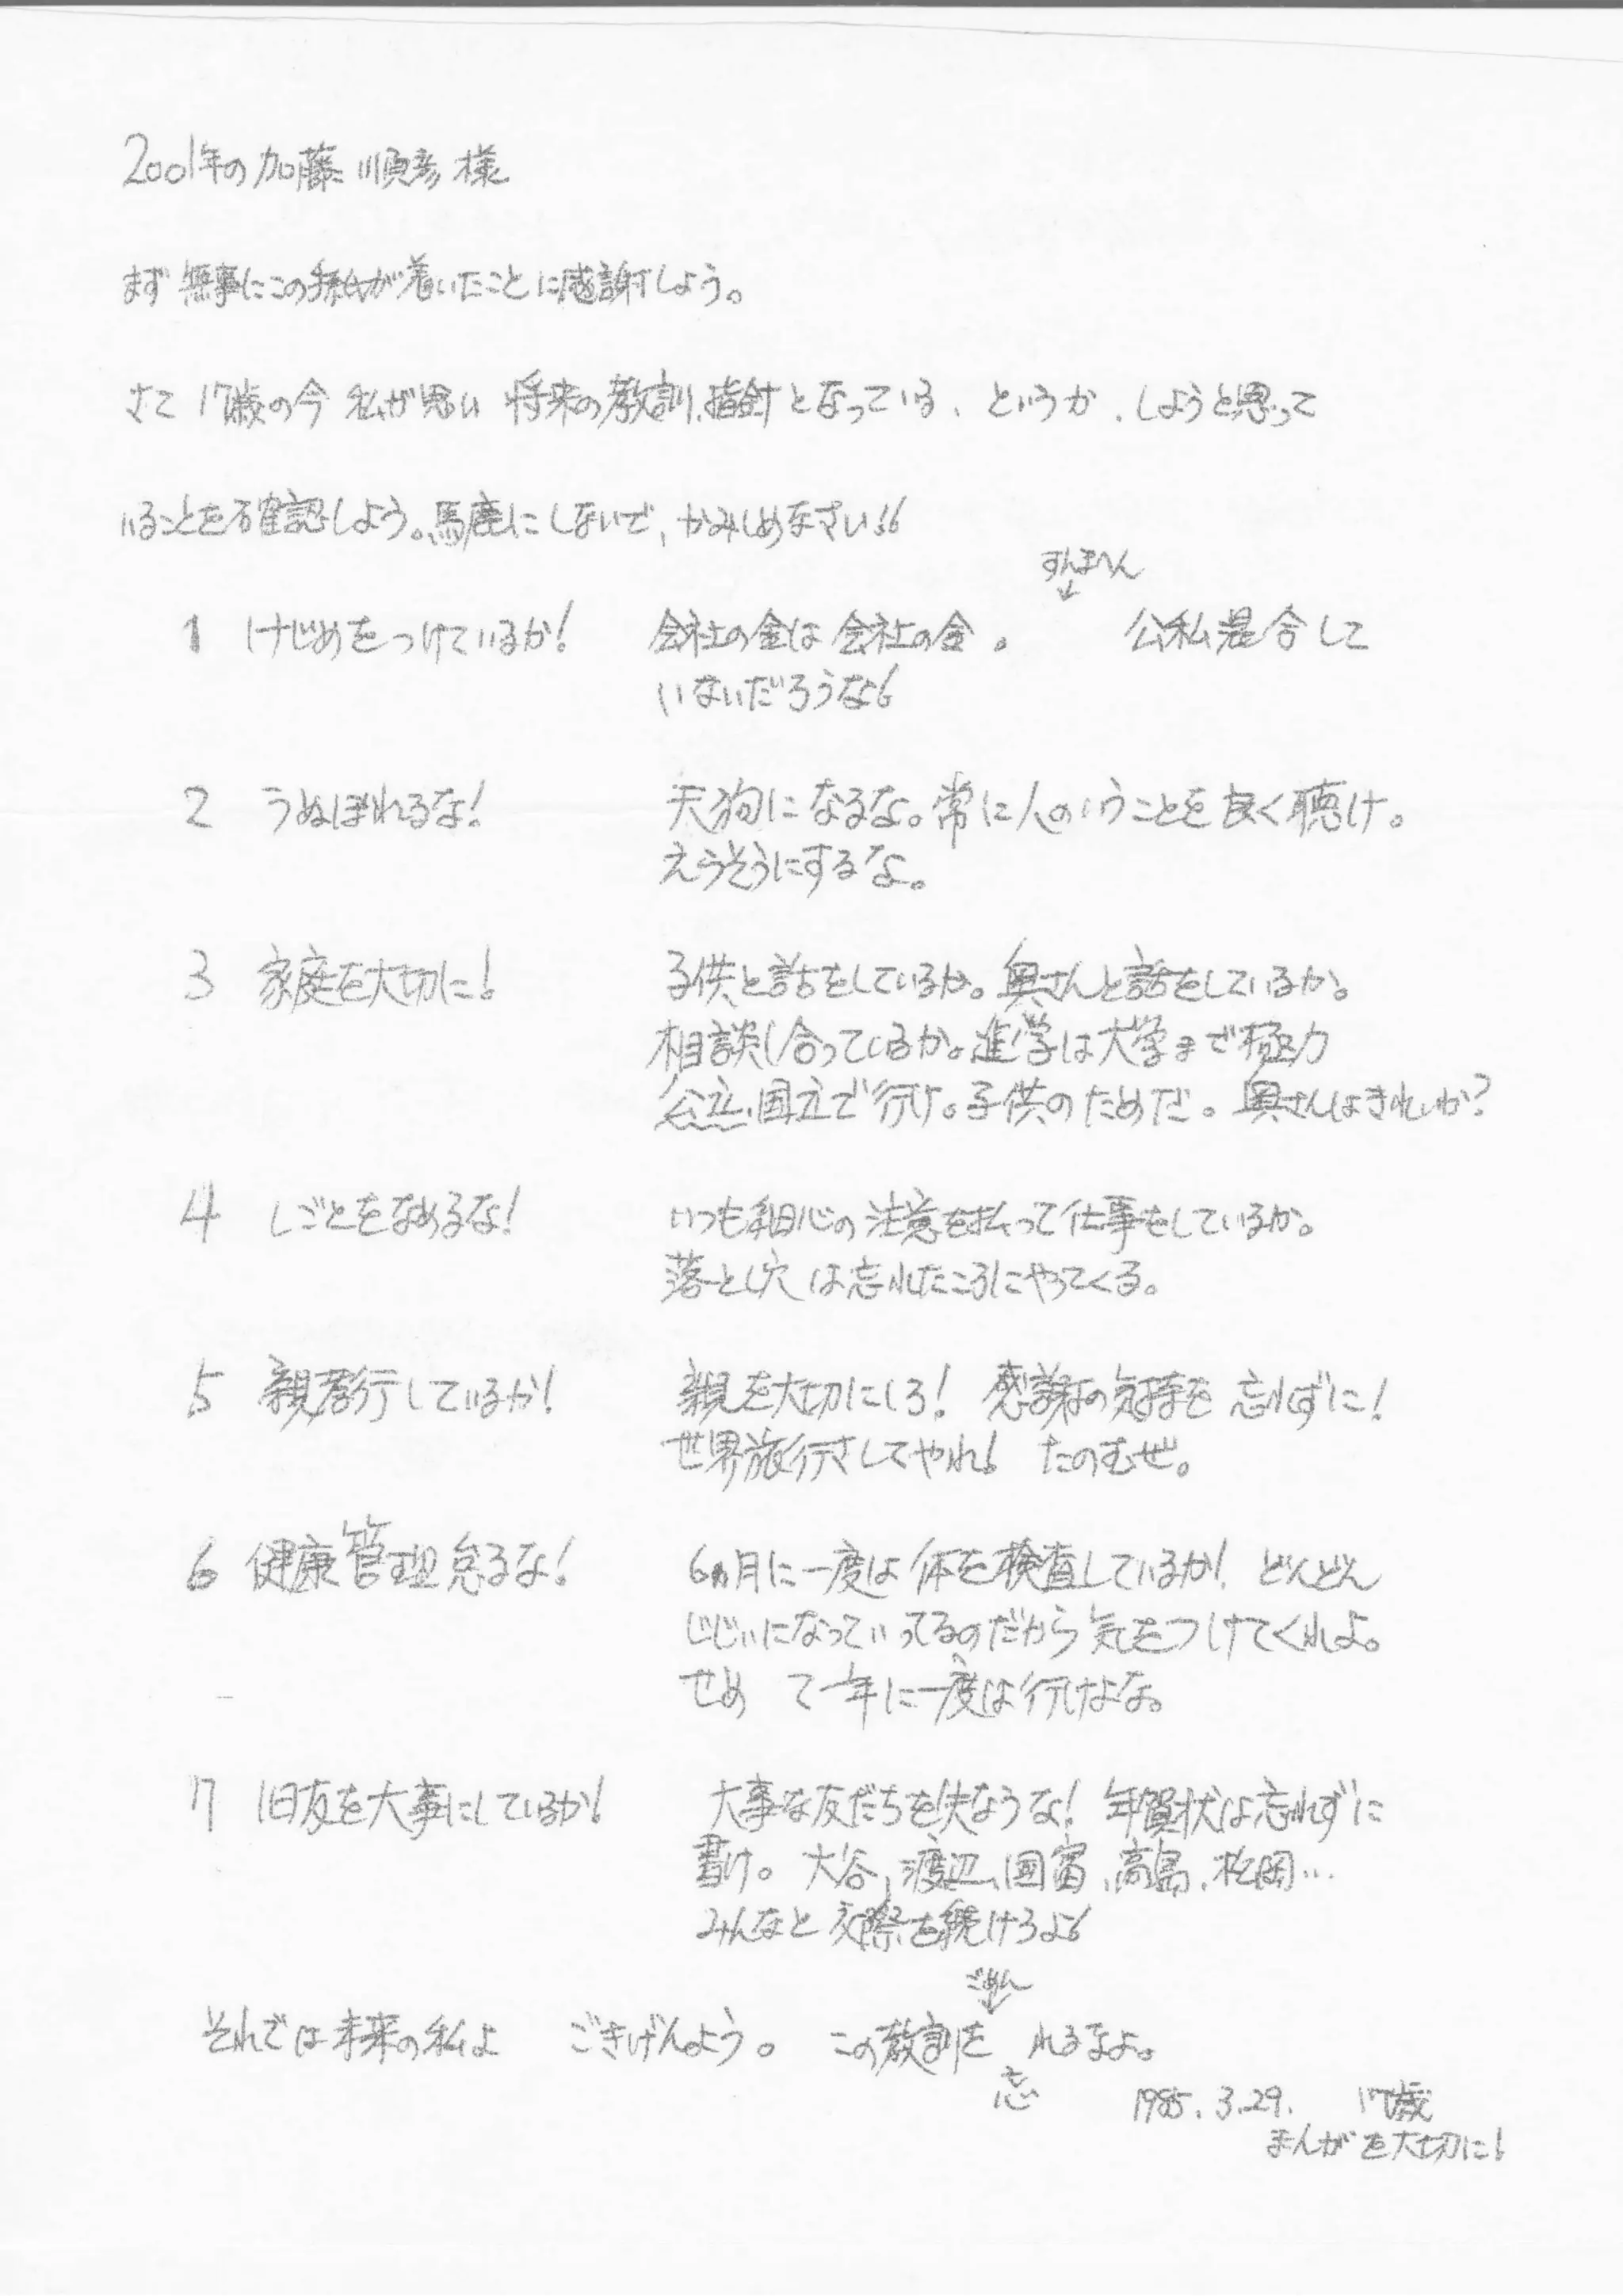 2001年の加藤 順彦 様
まず 無事にこの手紙が着いたことに感謝しよう。
さて 17歳の今 私が思い 将来の教訓、指針となっている、というか、しようと思って
いることを確認しよう。馬鹿にしないで、かみしめなさい!!
すんまへん
↓
1 けじめをつけているか! 会社の金は会社の金。 公私混合して
いないだろうな!
2 うぬぼれるな! 天狗になるな。常に人のいうことを良く聴け。
えらそうにするな。
3 家庭を大切に! 子供と話をしているか。奥さんと話をしているか。
相談し合っているか。進学は大学まで極力
公立、国立で行け。子供のためだ。奥さんはきれいか?
4 しごとをなめるな! いつも細心の注意を払って仕事をしているか。
落とし穴は忘れたころにやってくる。
5 親孝行しているか! 親を大切にしろ! 感謝の気持を忘れずに!
世界旅行さしてやれ! たのむぜ。
6 健康管理怠るな! 6ヵ月に一度は体を検査しているか! どんどん
じじいになっていってるのだから気をつけてくれよ。
せめ て一年に一度は行けよな。
7 旧友を大事にしているか! 大事な友だちを失なうな! 年賀状は忘れずに
書け。大谷、渡辺、国富、高島、松岡…
みんなと交際を続けろよ!
ごめん
↓
それでは未来の私よ ごきげんよう。 この教訓を れるなよ。
忘
1985.3.29. 17歳
まんがを大切に!